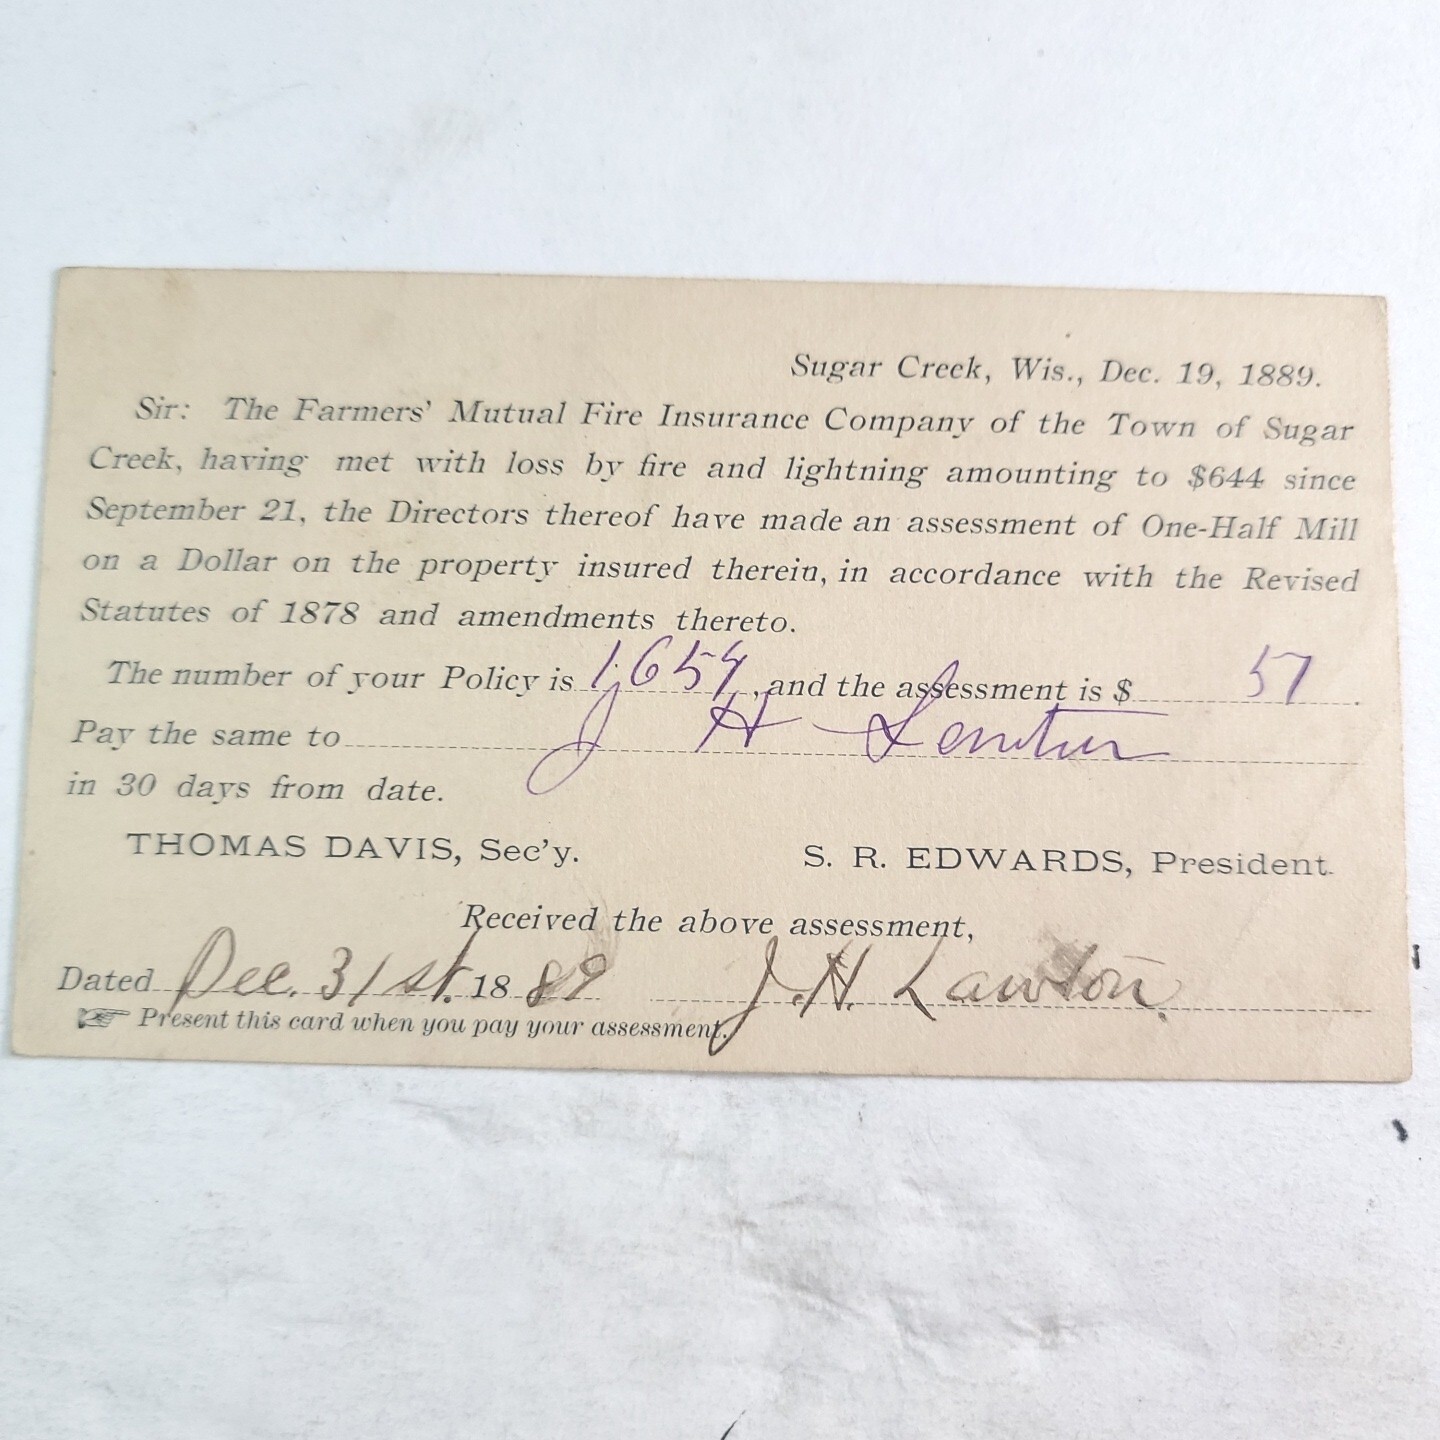 Sugar Creek, Wis., Dec. 19, 1889.
Sir: The Farmers' Mutual Fire Insurance Company of the Town of Sugar
Creek, having met with loss by fire and lightning amounting to $644 since
September 21, the Directors thereof have made an assessment of One-Half Mill
on a Dollar on the property insured therein, in accordance with the Revised
Statutes of 1878 and amendments thereto.
The number of your Policy is 1,654, and the assessment is $ 57.
Pay the same to J H
in 30 days from date.
THOMAS DAVIS, Sec'y. S. R. EDWARDS, President.
Received the above assessment,
Dated Dec. 31st. 1889 J. H. Lawton.
☞ Present this card when you pay your assessment.